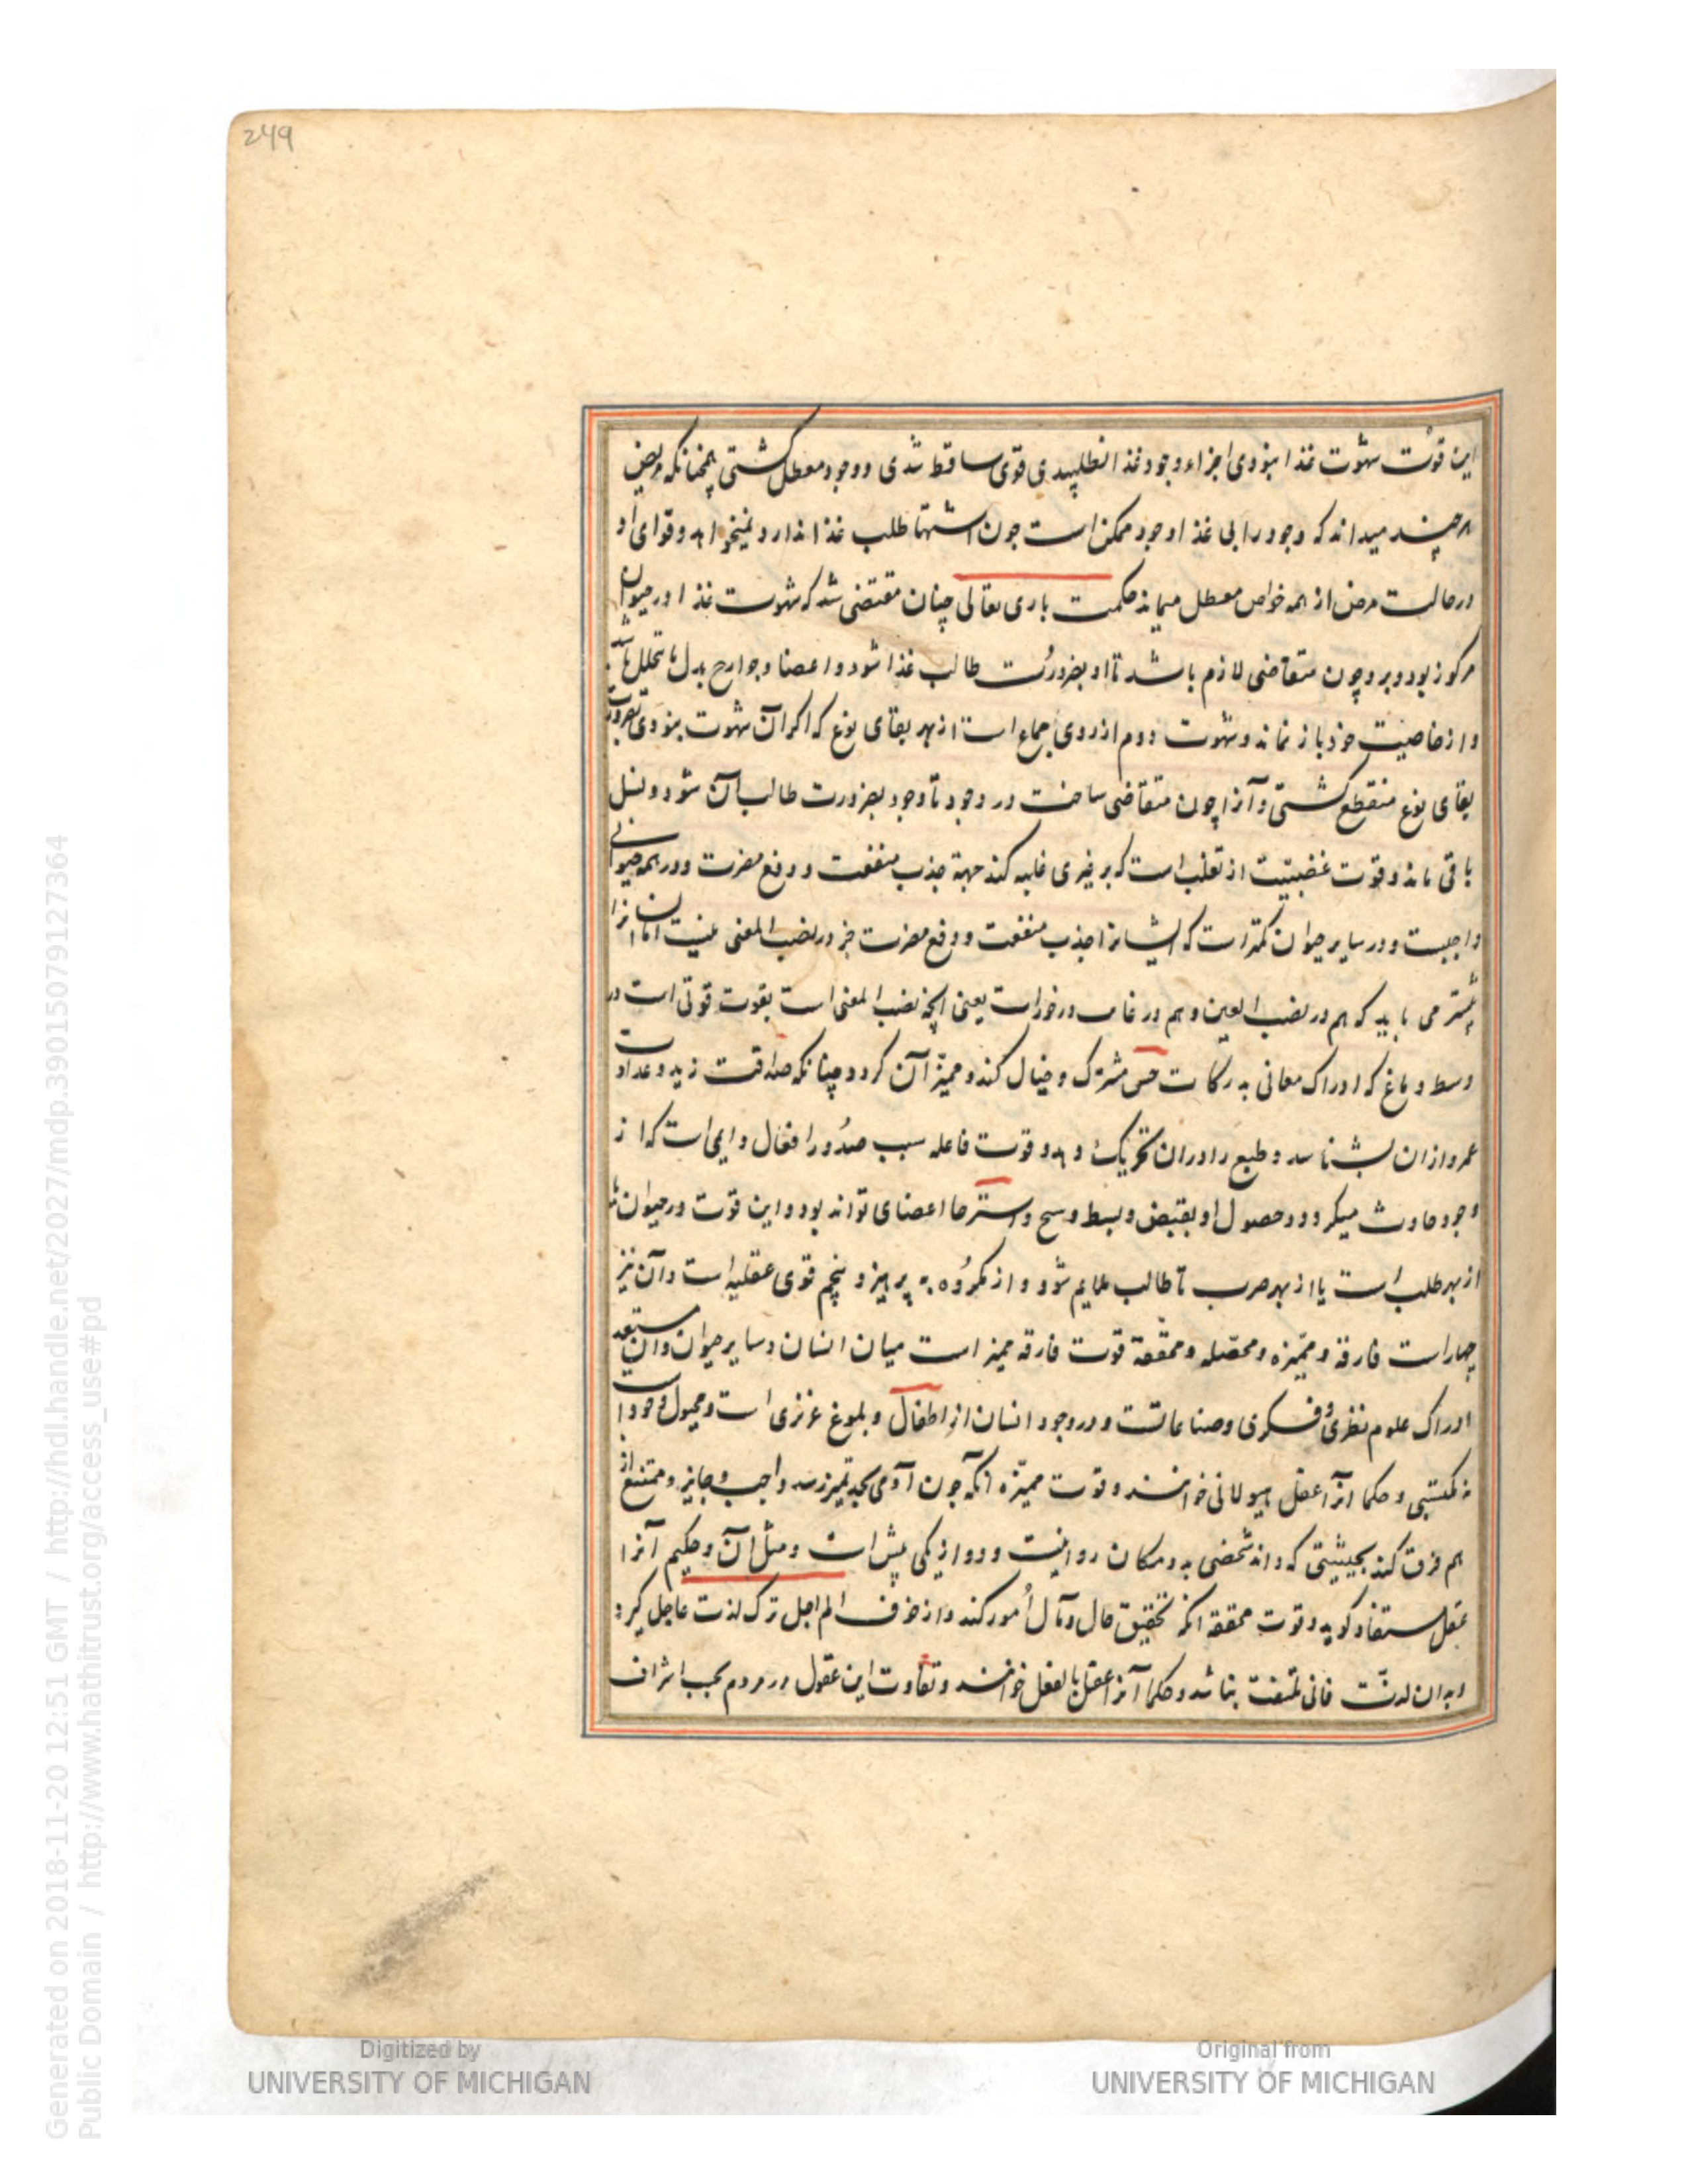 249
این قوت شهوت غذا نبودی اجزاء وجود غذا نطلبیدی قوی ساقط شدی و وجود معطل کشتی همچنانکه مریض
هرچند میداند که وجود را بی غذا وجود ممکن است جون اشتها طلب غذا ندارد نمیخواهد و قوای او
در حالت مرض از همه خواص معطل میماند حکمت باری تعالی چنان مقتضی شد که شهوت غذا در حیوان
مرکوز بود و برو چون متقاضی لازم باشد تا او بضرورت طالب غذا شود و اعضا و جوارح بدل ما تحلل باشد
و از خاصیت خود باز نماند و شهوت دوم از روی جماع است از بهر بقای نوع که اکر آن شهوت نبودی
بقای نوع منقطع کشتی و آنرا چون متقاضی ساخت در وجود تا وجود بضرورت طالب آن شود و نسل
باقی ماند و قوت غضبیت از تغلب است که بر غیری غلبه کند جهة جذب منفعت و دفع مضرت و در همه حیوانی
واجبست و در سایر حیوان کمتر است که ایشانرا جذب منفعت و دفع مضرت جز در نصب المعنی نیست اما انسانرا
بیشتر می باید که هم در نصب العین و هم در غایب در خور است یعنی انچه نصب المعنی است بقوت قوتی است در
وسط دماغ که ادراک معانی مدرکات حس مشترک و خیال کند و ممیز آن کردد چنانکه صداقت زید و عداوت
عمرو از ان بشناسد و طبع را در ان تحریک دهد و قوت فاعله سبب صدور افعال دایمی است که از
وجود حادث میکردد و حصول او بقبض و بسط و استرخا اعضای تواند بود و این قوت در حیوان
از بهر طلب است یا از بهر هرب تا طالب ملایم شود و از مکروه بپرهیزد پنجم قوی عقلیه است و آن نیز
چهار است فارقه و ممیزه و محصله و محققه قوت فارقه ممیز است میان انسان و سایر حیوان و آن مستعد
ادراک علوم نظری و فکری و صناعاتست و در وجود انسان از اطفال و بلوغ غریزی است و مجبول وجود است
نه مکتسبی و حکما انرا عقل هیولانی خوانند و قوت ممیزه انکه جون آدمی بحد تمیز رسد واجب و جایز و ممتنع از
هم فرق کند بحیثیتی که داند شخصی به دو مکان روا نیست و دو از یکی بیش است و مثل آن و حکیم آنرا
عقل مستفاد کوید و قوت محققه انکه تحقیق حال و مآل امور کند و از خوف الم اجل ترک لذت عاجل کیرد
و بدان لذت فانی ملتفت نباشد و حکما آنرا عقل بالفعل خوانند و تفاوت این عقول در مردم بحسب اشراف
Generated on 2018-11-20 12:51 GMT / http://hdl.handle.net/2027/mdp.39015079127364
Public Domain / http://www.hathitrust.org/access_use#pd
Digitized by
UNIVERSITY OF MICHIGAN
Original from
UNIVERSITY OF MICHIGAN